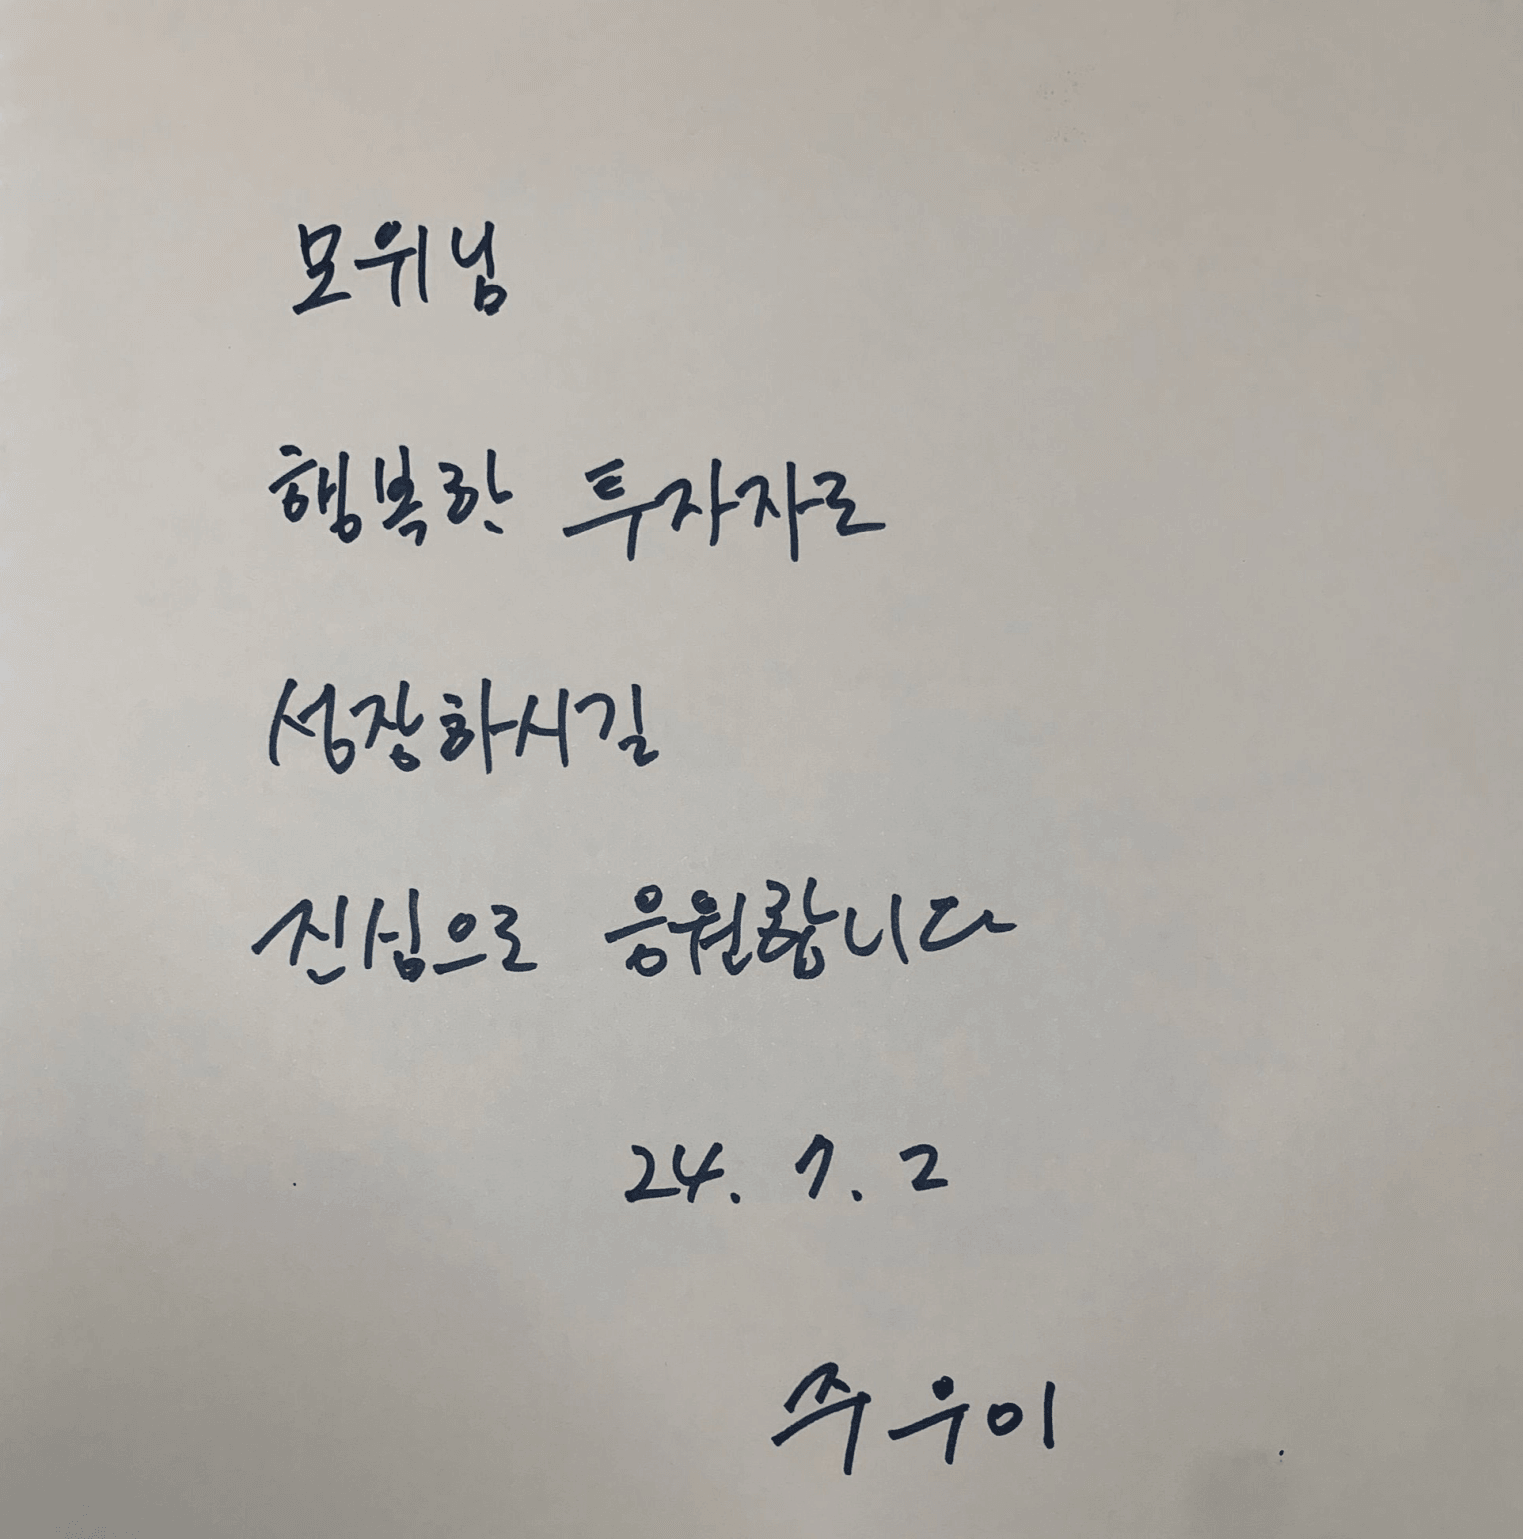 모위님
행복한 투자자로
성장하시길
진심으로 응원합니다
24. 7. 2
쭈우이